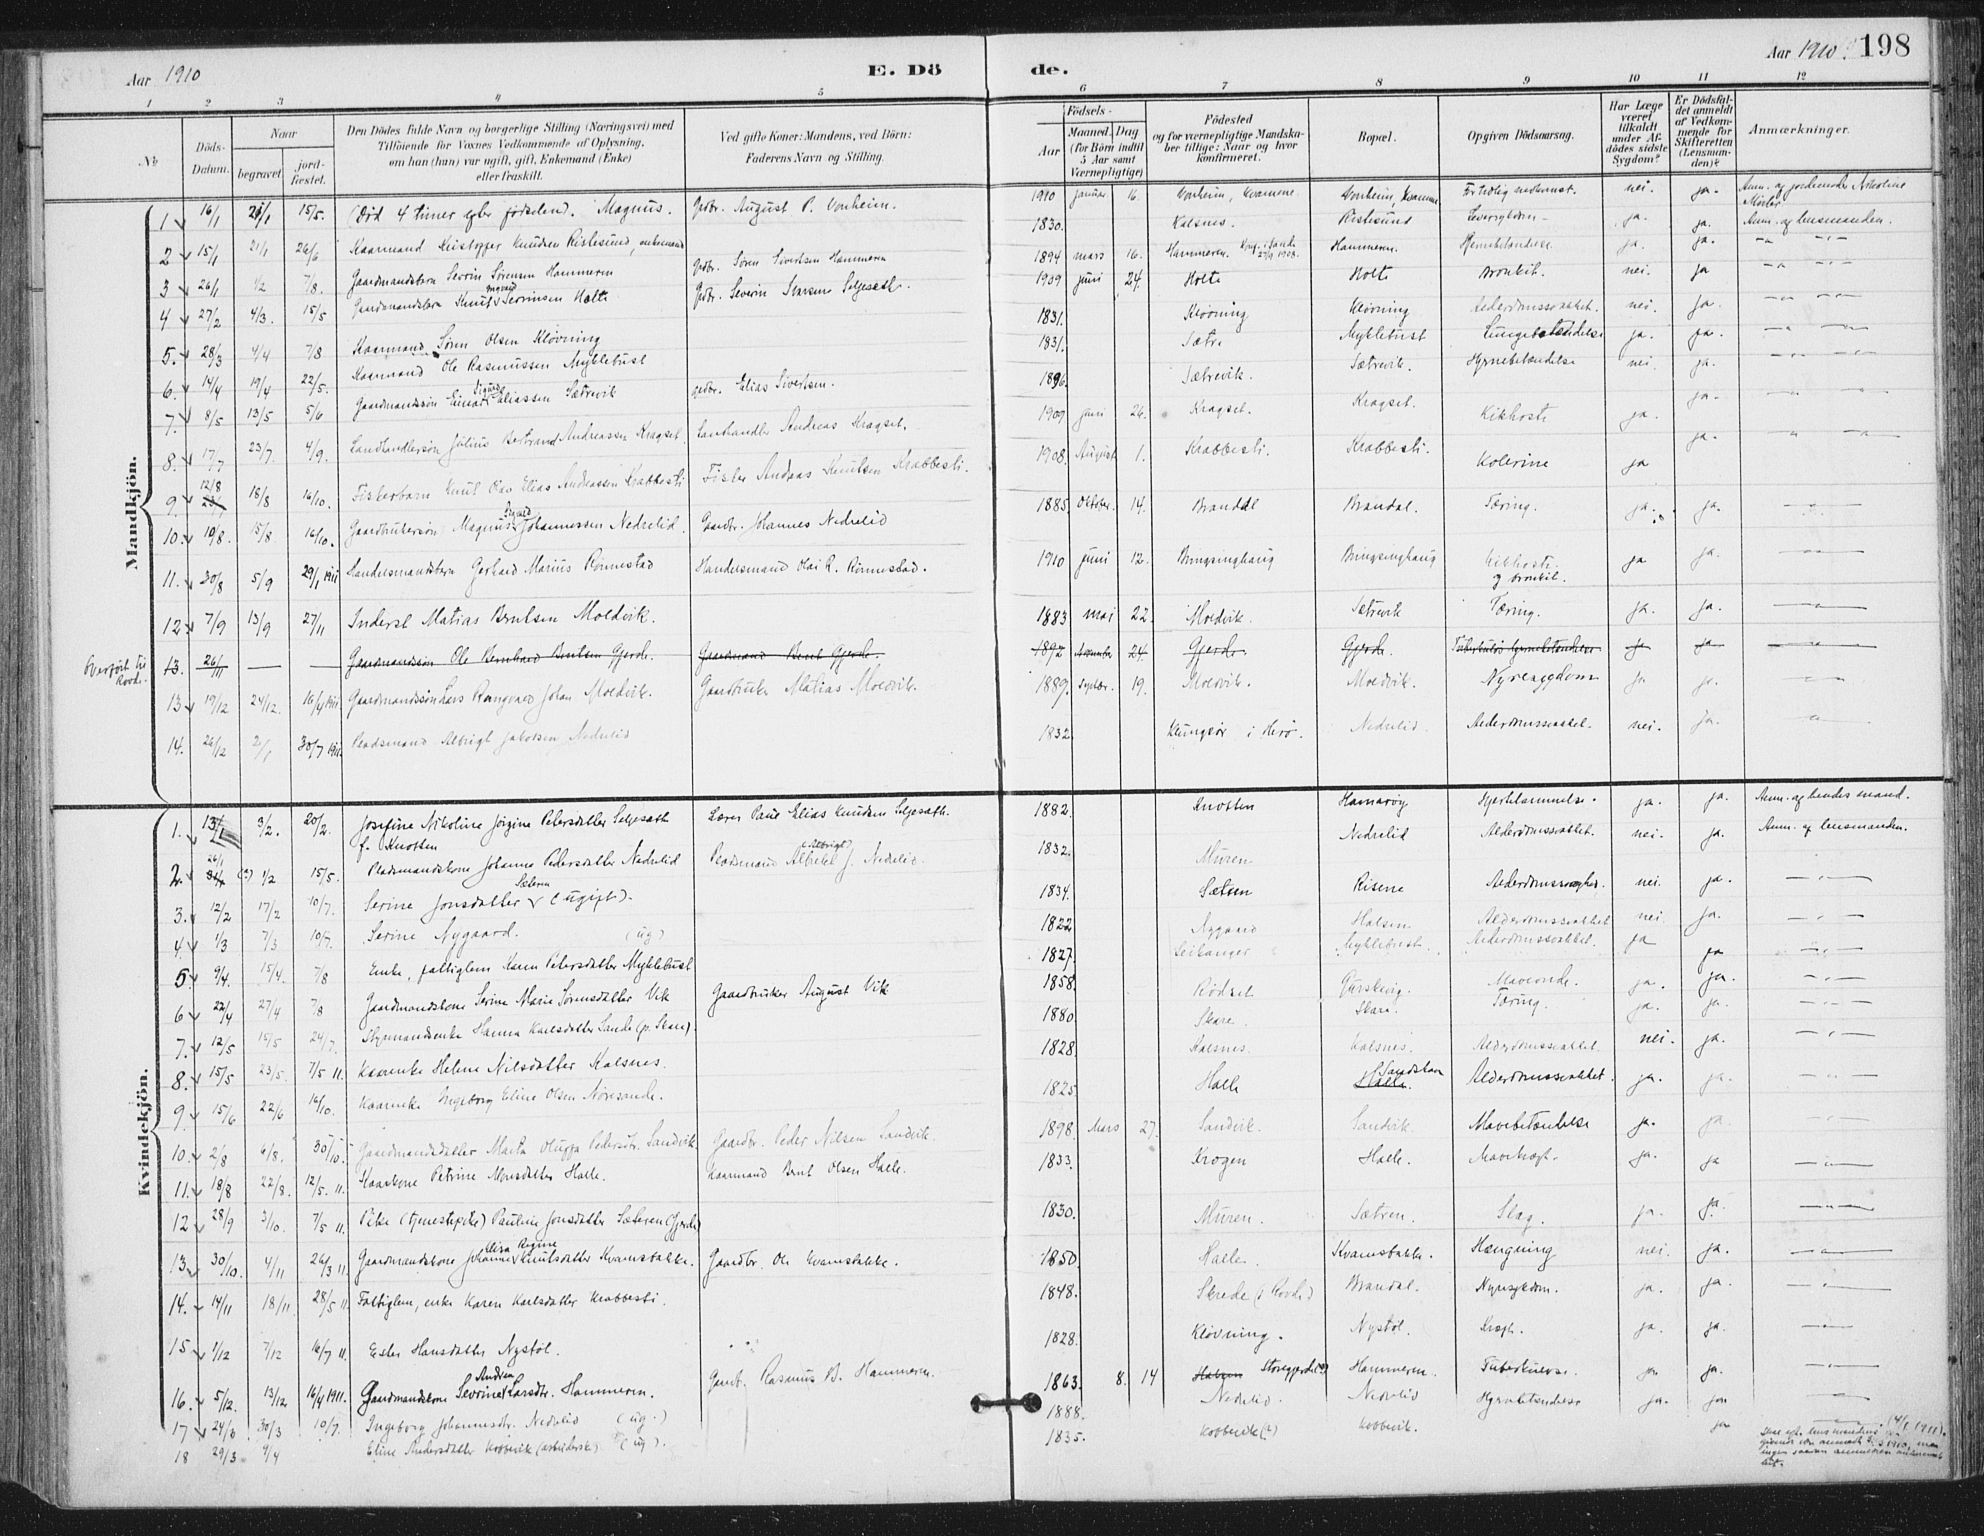 Aar 1910
E. Dö de.
Aar 1910. 198
1 2 3 4 5 6 7 8 9 10 11 12
No
Döds-Datum.
Naar
begravet.
jordfæstet.
Den Dödes fulde Navn og borgerlige Stilling (Næringsvei) med
Tilföiende for Voxnes Vedkommende af Oplysning,
om han (hun) var ugift, gift, Enkemand (Enke)
eller fraskilt.
Ved gifte Koner: Mandens, ved Börn:
Faderens Navn og Stilling.
Födsels-
Aar
Maaned, Dag
(for Börn indtil
5 Aar samt
Værnepligtige)
Födested
og for værnepligtige Mandskaber tillige: Naar og hvor
konfirmeret.
Bopæl.
Opgiven Dödsaarsag.
Har Læge været tilkaldt under Afdödes sidste Sygdom?
Er Dödsfaldet anmeldt af Vedkommende for Skifteretten (Lensmanden)?
Anmærkninger.
Mandkjön.
1 16/1 15/5. (Död 4 timer efter fødselen). Magnus. Grdbr. August P. Vonheim. 1910 Januar 16. Vonheim, Kvamene. Vonheim, Kvamene For tidlig nedkomst. nei. ja.
2 15/1 21/1 26/6 Kaarmand Kristoffer Knudsen Ristesund, enkemand 1830. Kalsnes. Ristesund Leversygdom ja. ja. Anm. af lensmanden.
3 26/1 1/2 7/8. Gaardmandssøn Severin Sørensen Hammeren Grdbr. Søren Sivertsen Hammeren 1894 mars 16. Hammeren. Hammeren. Hjernebetændelse. ja. ja.
4 27/2 4/3. 15/5 Gaardmandsbarn Knut Ingvard Severinsen Holte Grdbr. Severin Iversen Seljeseth. 1909 juni 24. Holte Holte Bronkit. nei. ja
5. 28/3 4/4 7/8 Kaarmand Søren Olsen Kløvning 1831. Kløvning Kløvning Alderdomssvakhet. nei. ja.
6. 14/4 19/4 22/5. Kaarmand Ole Rasmussen Myklebust 1831. Sætre Myklebust Lungebetændelse ja. ja.
7. 8/5 13/5 5/6 Gaardmandssøn Einar Sigurd Eliassen Sætrevik grdbr. Elias Sivertsen. 1896. Sætrevik. Sætrevik. Hjernebetændelse nei. ja.
8. 17/7 23/7. 4/9. Landhandlersøn Julius Bertrand Andreassen Kragset. Landhandler Andreas Kragset. 1909 juni 26. Kragset. Kragset. Kikhoste ja. ja.
9. 12/8 18/8 16/10. Fiskerbarn Knut Olav Elias Andreassen Krabbesti Fisker Andreas Knutsen Krabbesti. 1908. August 1. Krabbesti. Krabbesti. Kolerine ja ja.
10. 10/8. 15/8 16/10. Gaardbrukersøn Magnus Sigvard Johannessen Nedrelid Gaardbr. Johannes Nedrelid 1885 Oktober 14. Brandal Brandal. Tæring. ja. ja.
11. 30/8 5/9 29/1 1911 Handelsmandsbarn Gerhard Marius Rønnestad Handelsmand Olai R. Rønnestad. 1910 juni 12. Bringsinghaug Bringsinghaug Kikhoste og bronkit. ja ja.
12 7/9 13/9 27/11 Inderst Matias Berntsen Moldvik. 1883 mai 22. Moldvik. Sætrevik Tæring. ja. ja.
Overført til Rovde. 13. 26/11 — — Gaardmandssøn Ole Bernhard Berntsen Gjerde. Gaardmand Bernt Gjerde. 1892 November 24. Gjerde. Gjerde. Tuberkuløs hjernebetændelse ja ja
13 19/12 24/12. 16/4 1911 Gaardmandssøn Lars Ragnvard Johan Moldvik. Gaardbruker Matias Moldvik. 1889. Septbr. 19. Moldvik. Moldvik. Nyresygdom ja ja.
14. 26/12 2/1 30/7 1911. Pladsmand Albrigt Jakobsen Nedrelid 1832. Klungsør i Herø. Nedrelid. Alderdomssvakhet. nei. ja.
Kvindekjön.
1. 3/2. 20/2. Josefine Nikoline Jørgine Petersdatter Seljeseth f. Knotten Lærer Paul Elias Knudsen Seljeseth. 1882. Knotten Hamarøy Hjertelammelse. ja. ja. Anm. af hendes mand.
2. 26/1 (?) 1/2 15/5. Pladsmandskone Johanne Pedersdatter Nedrelid Pladsmand Albrekt (Albrigt) J. Nedrelid. 1832. Muren Nedrelid Alderdomssvakhet. nei. ja. Anm. af lensmanden.
3. 12/2 17/2 10/7. Serine Jonsdatter Sæteren (ugift). 1834. Sætren Risene Alderdomssvaghed. nei. ja.
4. 1/3 7/3 10/7. Serine Nygaard. (ug) 1822 Nygaard Halsen Alderdomssvakhet nei. ja.
5 9/4. 15/4. 7/8 Enke, fattiglem Karen Petersdatter Myklebust 1827. Leikanger Myklebust. Alderdomssvakhet. ja ja
6 22/4 27/4 7/8 Gaardmandskone Serine Marie Sørensdatter Vik Gaardbruker August Vik 1858. Rødset Gurskevig. Mavesonde. ja. ja.
7. 12/5 15/5 24/7. Styrmandsenke Hanna Karlsdatter Sande (p. Skare) 1880. Skare Skare. Tæring. ja. ja.
8. 15/5 23/5. 7/5 11. Kaarenke Helene Nilsdatter Kalsnes. 1828. Kalsnes. Kalsnes. Alderdomssvakhet. nei. ja.
9. 15/6 22/6 16/10. Kaarenke Ingeborg Eline Olsen Nøresande. 1825. Halle Halle. Alderdomssvakhet. ja. ja.
10. 2/8 6/8. 30/10. Gaardmandsdatter Marta Oluffa Pedersdtr. Sandvik Gaardbr. Peder Nilsen Sandvik. 1898. Mars 27. Sandvik. Sandvik. Mavebetændelse ja. ja.
11. 18/8 22/8. 12/5. 11. Kaarkone Petrine Monsdatter Halle. Kaarmand Bernt Olsen Halle. 1833. Krogen Halle. Mavekræft. ja. ja
12 28/9 3/10. 7/5 11. Pike (tjenestepike) Pauline Jonsdatter Sæteren (Gjerde) 1830. Muren. Sætren. Slag. ja. ja.
13. 30/10. 4/11 26/3 11. Gaardmandskone Johanne Elisa Regine Knutsdatter Kvamsbakke. Gaardbr. Ole Kvamsbakke. 1850. Halle. Kvamsbakke. Hængning nei. ja.
14. 14/11 18/11. 28/5 11. Fattiglem, enke Karen Karlsdatter Krabbesti. 1848. Skrede (i Rovde) Brandal. Nyresygdom. ja. ja.
15 1/12 7/12 16/7 11. Ester Hansdatter Nystøl. 1828. Kløvning. Nystøl. Kræft. ja. ja.
16. 5/12. 13/12 16/4 1911. Gaardmandskone Severine Andrea Larsdtr. Hammeren. Gaardb. Rasmus B. Hammeren. 1863. 8. 14 Storegjerdet(?) Hammeren. Tuberkulose. ja ja.
17 24/3 30/3 10/7. Ingeborg Johannesdtr. Nedrelid (ug.) 1888. Nedrelid. Nedrelid Hjernebetændelse ja. ja
18 29/3 4/4 Eline Andersdatter Kobbevik (arbeidersk) (ug). 1835. Kobbevik (?) Kobbevik. ja